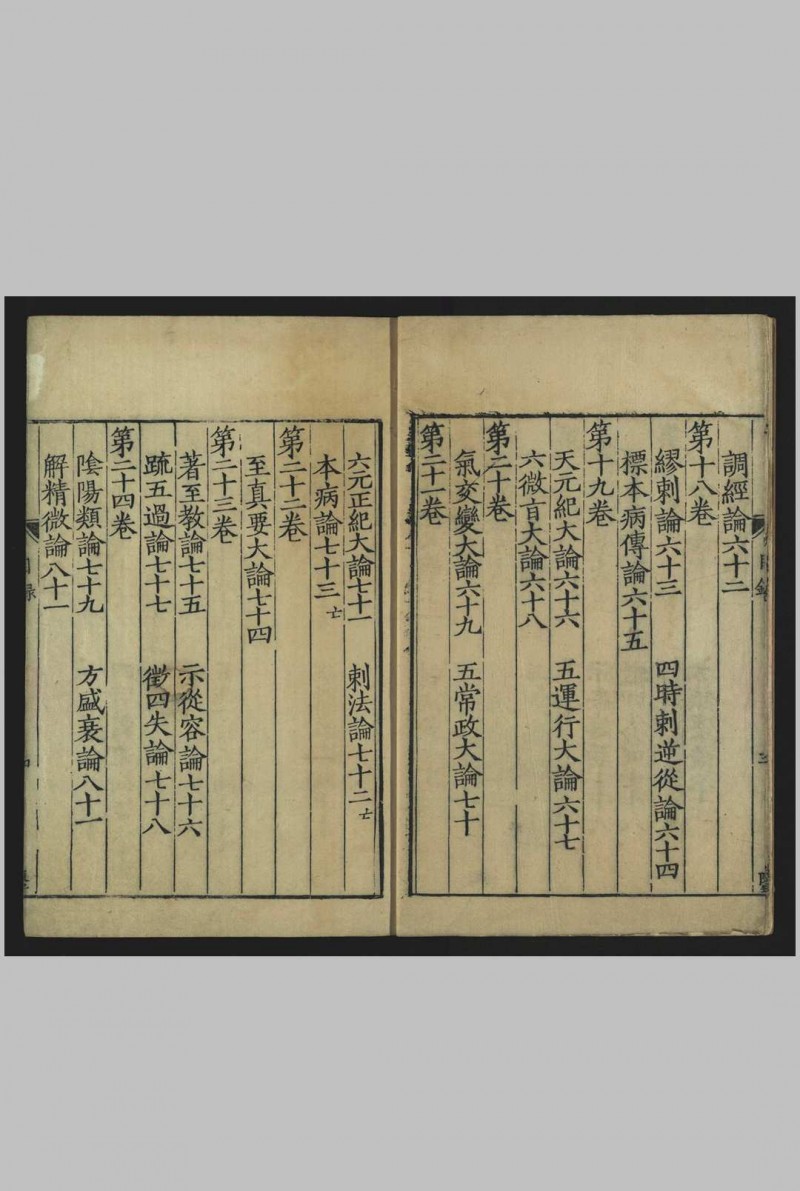 調經論六十二
第十八卷
繆刺論六十三　四時刺逆從論六十四
標本病傳論六十五
第十九卷
天元紀大論六十六　五運行大論六十七
六微旨大論六十八
第二十卷
氣交變大論六十九　五常政大論七十
第二十一卷
六元正紀大論七十一　刺法論七十二亡
本病論七十三亡
第二十二卷
至真要大論七十四
第二十三卷
著至教論七十五　示從容論七十六
疏五過論七十七　徵四失論七十八
第二十四卷
陰陽類論七十九　方盛衰論八十一
解精微論八十一